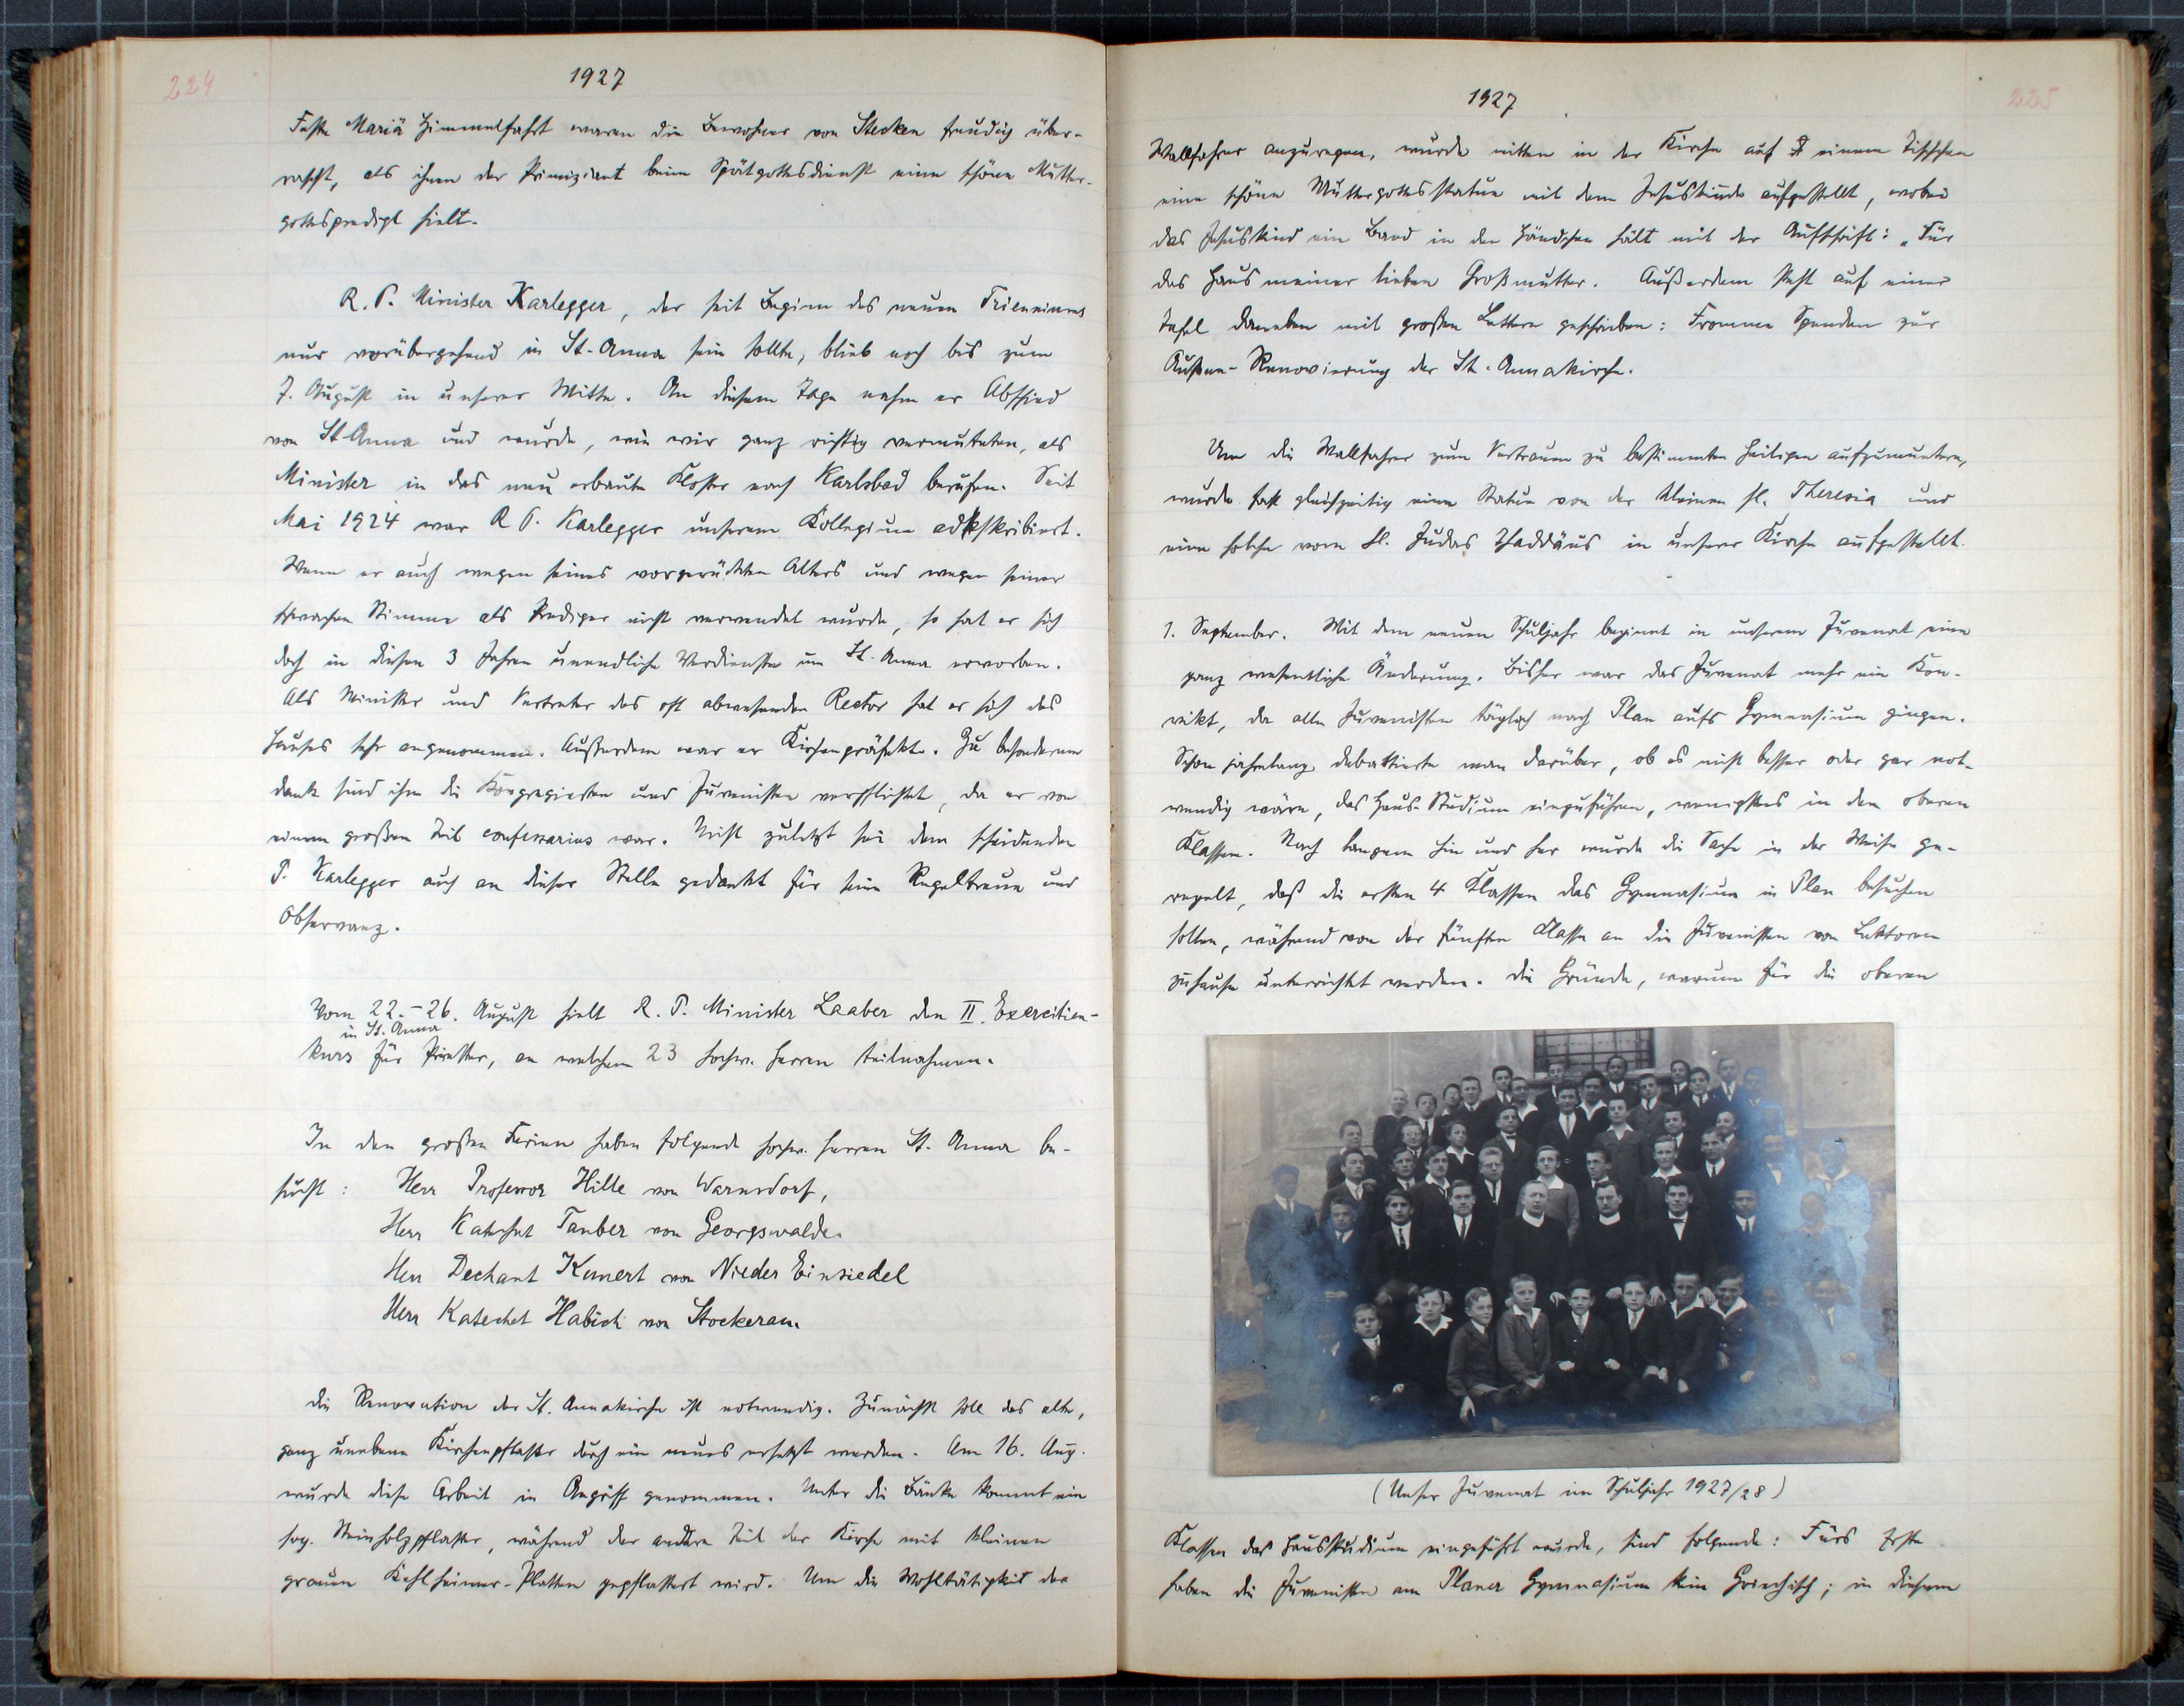 224
1927
Feste Mariä Himmelfahrt waren die Bewohner von Stecken freudig über-
rascht, als ihnen der Primiziant beim Spätgottesdienst eine schöne Mutter-
gottespredigt hielt.
R. P. Minister Karlegger, der seit Beginn des neuen Trienniums
nur vorübergehend in St. Anna sein sollte, blieb noch bis zum
7. August in unserer Mitte. An diesem Tage nahm er Abschied
von St. Anna und wurde, wie wir ganz richtig vermuteten, als
Minister in das neu erbaute Kloster nach Karlsbad berufen. Seit
Mai 1924 war R. P. Karlegger unserem Kollegium adskribiert.
Wenn er auch wegen seines vorgerückten Alters und wegen seiner
schwachen Stimme als Prediger nicht verwendet wurde, so hat er sich
doch in diesen 3 Jahren unendliche Verdienste um St. Anna erworben.
Als Minister und Vertreter des oft abwesenden Rector hat er sich des
Hauses sehr angenommen. Außerdem war er Kirchenpräfekt. Zu besonderem
Dank sind ihm die Kongregierten und Juvenisten verpflichtet, da er von
einem großen Teil confessarius war. Nicht zuletzt sei dem scheidenden
P. Karlegger auch an dieser Stelle gedankt für seine Regeltreue und
Observanz.
Vom 22.-26. August hielt R. P. Minister Laaber den II. Exercitien-
in St. Anna
kurs für Priester, an welchem 23 hochw. Herren teilnahmen.
In den großen Ferien haben folgende hochw. Herren St. Anna be-
sucht: Herr Professor Hille von Warnsdorf,
Herr Katechet Tauber von Georgswalde.
Herr Dechant Kunert von Nieder Einsiedel
Herr Katechet Habich von Stockerau.
Die Renovation der St. Annakirche ist notwendig. Zunächst soll das alte,
ganz unebene Kirchenpflaster durch ein neues ersetzt werden. Am 16. Aug.
wurde diese Arbeit in Angriff genommen. Unter die Bänke kommt ein
sog. Steinholzpflaster, während der andere Teil der Kirche mit kleinen
grauen Kehlheimer-Platten gepflastert wird. Um die Wohltätigkeit der
225
1927
Wallfahrer anzuregen, wurde mitten in der Kirche auf einem Tischchen
eine schöne Muttergottesstatue mit dem Jesuskinde aufgestellt, wobei
das Jesuskind ein Band in den Händchen hält mit der Aufschrift: „Für
das Haus meiner lieben Großmutter. Außerdem steht auf einer
Tafel daneben mit großen Lettern geschrieben: Fromme Spenden zur
Außen-Renovierung der St. Annakirche.
Um die Wallfahrer zum Vertrauen zu bestimmten Heiligen aufzumuntern,
wurde fast gleichzeitig eine Statue von der kleinen hl. Theresia und
eine solche vom hl. Judas Thaddäus in unserer Kirche aufgestellt.
1. September. Mit dem neuen Schuljahr beginnt in unserem Juvenat eine
ganz wesentliche Änderung. Bisher war das Juvenat mehr ein Kon-
vikt, da alle Juvenisten täglich nach Plan aufs Gymnasium gingen.
Schon jahrelang debattierte man darüber, ob es nicht besser oder gar not-
wendig wäre, das Haus-Studium einzuführen, wenigstens in den oberen
Klassen. Nach langem hin und her wurde die Sache in der Weise ge-
regelt, daß die ersten 4 Klassen das Gymnasium in Plan besuchen
sollen, während von der fünften Klasse an die Juvenisten von Lektoren
zuhause unterrichtet werden. Die Gründe, warum für die oberen
(Unser Juvenat im Schuljahr 1927/28)
Klassen das Hausstudium eingeführt wurde, sind folgende: Fürs Erste
haben die Juvenisten am Planer Gymnasium kein Griechisch; in diesem